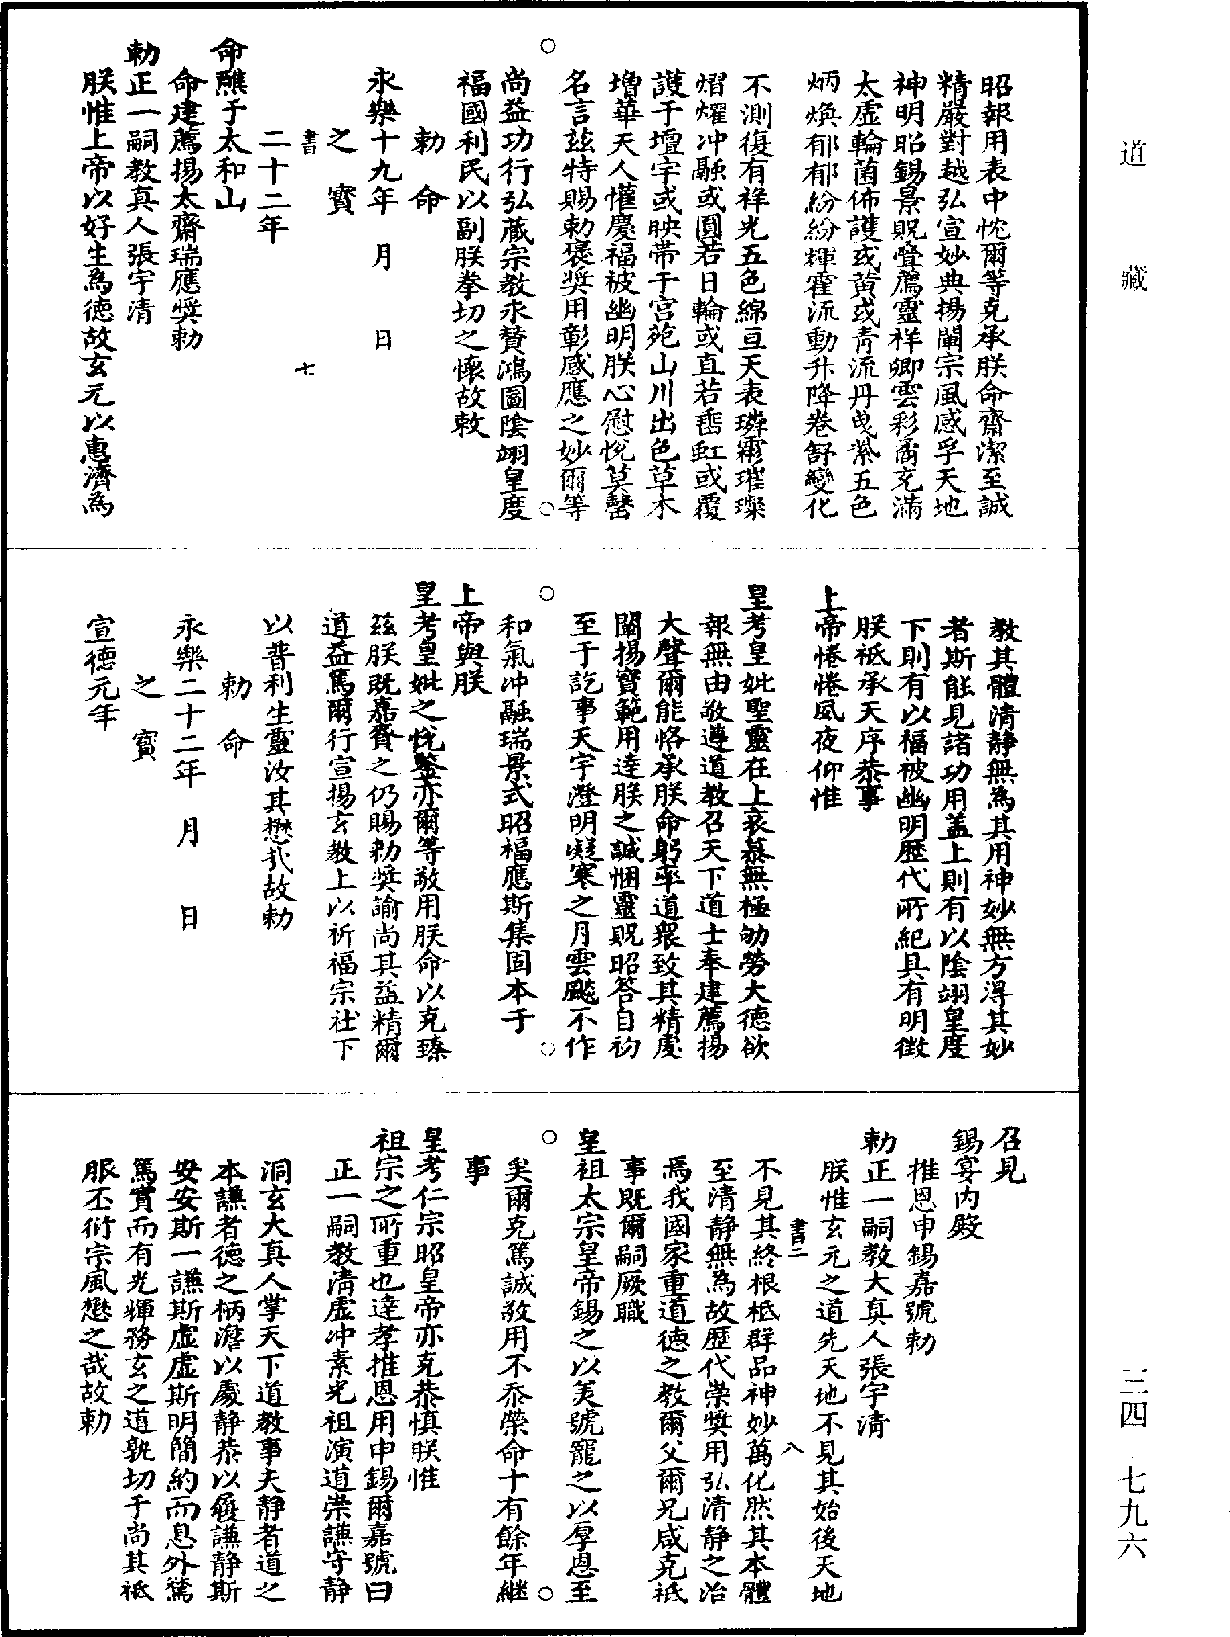 道藏
三四 七九六
昭報用表中忱爾等克承朕命齋潔至誠
精嚴對越弘宣妙典揚闡宗風感孚天地
神明昭錫景貺疊薦靈祥卿雲彩矞充滿
太虛輪菌佈護或黃或青流丹曳紫五色
炳煥郁郁紛紛輝霍流動升降卷舒變化
不測復有祥光五色綿亘天表璘霦璀璨
熠燿冲融或圓若日輪或直若垂虹或覆
護于壇宇或映帶于宮苑山川出色草木
增華天人懽慶福被幽明朕心慰悅莫罄
名言玆特賜勅褒獎用彰感應之妙爾等
尚益功行弘蔵宗教永賛鴻圖陰翊皇度
福國利民以副朕拳切之懷故敕
勅命
永樂十九年 月 日
之寳
書 七
二十二年
命醮于太和山
命建薦揚太齋瑞應獎勅
勅正一嗣教真人張宇清
朕惟上帝以好生爲德故玄元以惠濟爲
教其體清靜無爲其用神妙無方淂其妙
者斯能見諸功用盖上則有以陰翊皇度
下則有以福被幽明歷代所紀具有明徴
朕祗承天序恭事
上帝惓惓夙夜仰惟
皇考皇妣聖靈在上哀慕無極劬勞大德欲
報無由敬遵道教召天下道士奉建薦揚
大齋爾能恪承朕命躬率道衆致其精虔
闡揚寳範用達朕之誠悃靈貺昭答自初
至于訖事天宇澄明凝寒之月雲颷不作
和氣冲融瑞景式昭福應斯集固本于
上帝與朕
皇考皇妣之恱鑒亦爾等敬用朕命以克臻
兹朕既嘉賚之仍賜勑獎諭尚其益精爾
道益篤爾行宣揚玄教上以祈福宗社下
以普利生靈汝其懋哉故勅
勅命
永樂二十二年 月 日
之寳
宣德元年
召見
錫宴内殿
推恩申錫嘉號勅
勅正一嗣教大真人張宇清
朕惟玄元之道先天地不見其始後天地
書二 八
不見其終根柢群品神妙萬化然其本體
至清靜無爲故歷代崇獎用弘清靜之治
焉我國家重道德之教爾父爾兄咸克祗
事既爾嗣厥職
皇祖太宗皇帝錫之以美號寵之以厚恩至
矣爾克篤誠敬用不忝榮命十有餘年繼
事
皇考仁宗昭皇帝亦克恭慎朕惟
祖宗之所重也達孝推恩用申錫爾嘉號曰
正一嗣教清虛冲素光祖演道崇謙守靜
洞玄大真人掌天下道教事夫靜者道之
本謙者德之柄澹以處靜恭以履謙靜斯
安安斯一謙斯虛虛斯明簡約而息外篤
篤實而有光輝務玄之道孰切于尚其祗
服丕衍宗風懋之哉故勅